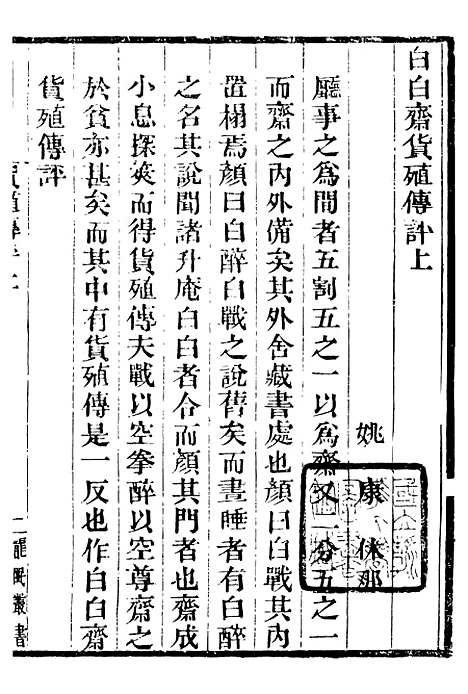 白白齋貨殖傳評上
姚康休那
廳事之爲間者五割五之一以爲齋又二分五之一
而齋之內外備矣其外舍藏書處也顏曰白戰其內
置榻焉顏曰白醉白戰之說舊矣而晝睡者有白醉
之名其說聞諸升庵白白者合而顏其門者也齋成
小息探篋而得貨殖傳夫戰以空拳醉以空尊齋之
於貧亦甚矣而其中有貨殖傳是一反也作白白齋
貨殖傳評
龍眠叢書